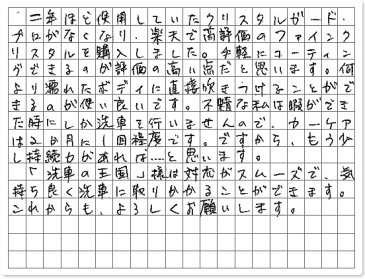 二年ほど使用していたクリスタルガード・
プロがなくなり、楽天で高評価のファインク
リスタルを購入しました。手軽にコーティン
グできるのが評価の高い点だと思います。何
より濡れたボディに直接吹きつけることがで
きるのが使い良いです。不精な私は暇ができ
た時にしか洗車を行いませんので、カーケア
は2か月に1回程度です。ですから、もう少
し持続力があれば……と思います。
「洗車の王国」様は対応がスムーズで、気
持ち良く洗車に取りかかることができます。
これからも、よろしくお願いします。